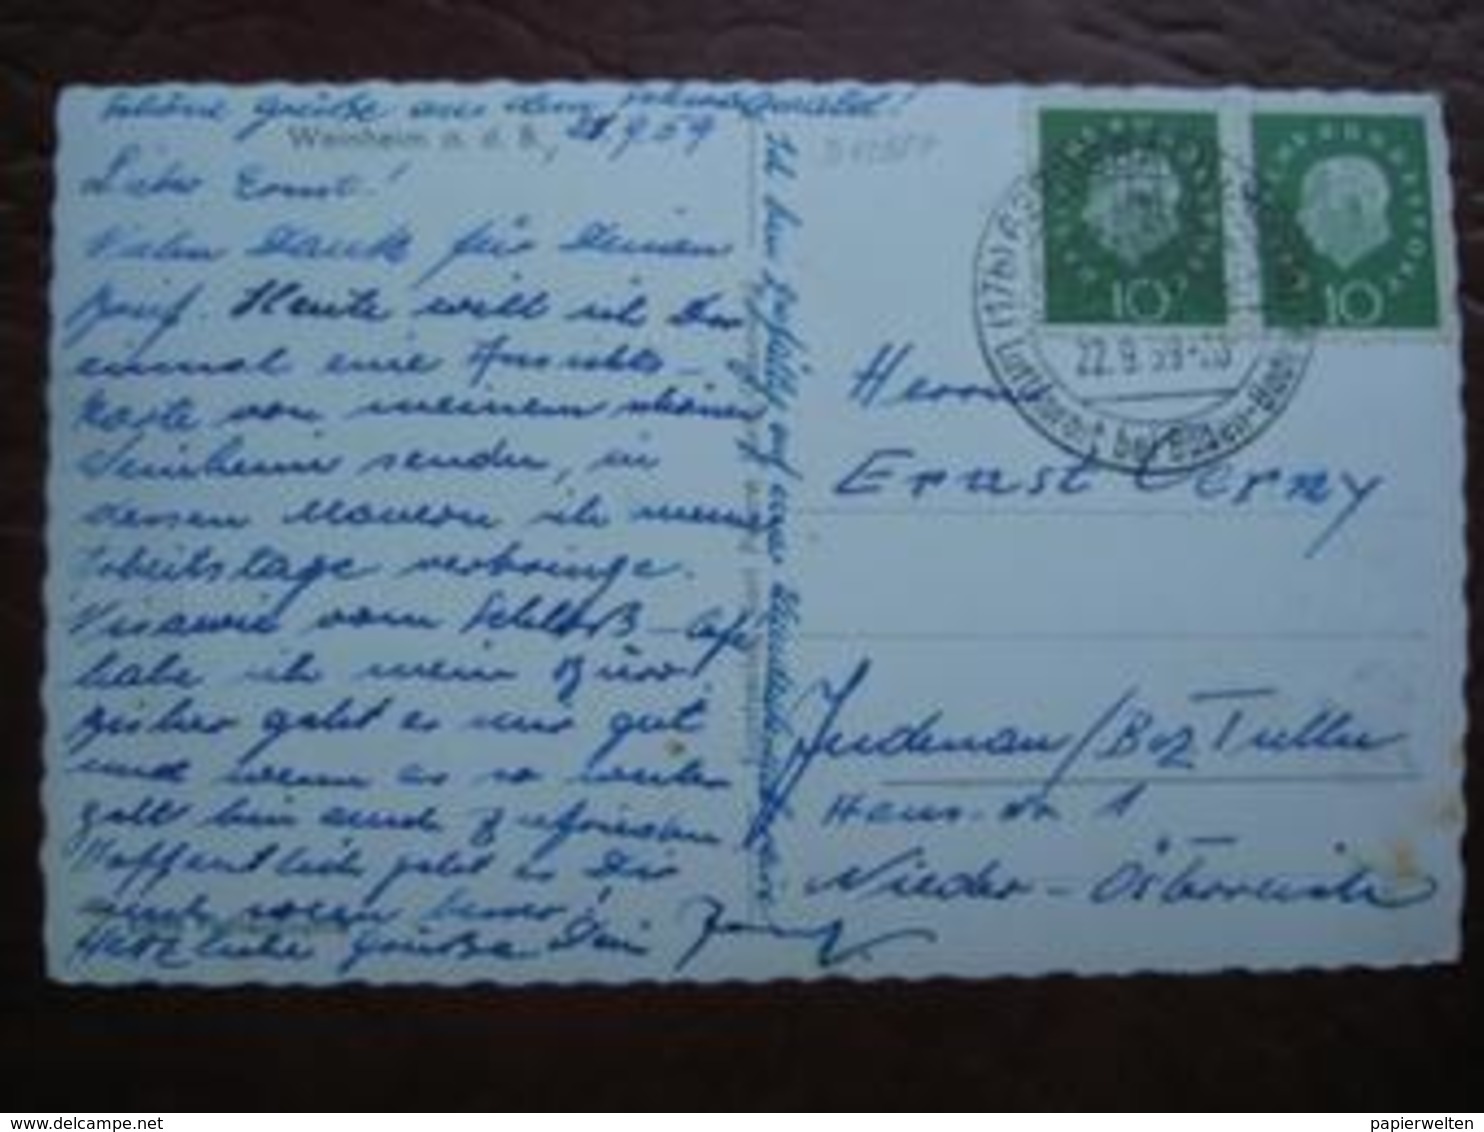 Schöne Grüße aus dem Schwarzwald!
Weinheim a. d. B., 21.9.59
Lieber Ernst!
Vielen Dank für Deinen
Brief. Heute will ich Dir
einmal eine Ansichts-
karte von meinem schönen
Weinheim senden, in
dessen Mauern ich meine
Arbeitstage verbringe.
Visavis vom Schloß-Café
habe ich mein Büro.
Bisher geht es mir gut
und wenn es so weiter
geht bin auch zufrieden
Hoffentlich geht es Dir
auch schon besser!
Herzliche Grüße Dein
Ich bin zufällig auf einer
DEUTSCHE BUNDESPOST
10
DEUTSCHE BUNDESPOST
10
(17b)
22.9.59
Luftkurort bei Baden-Baden
Herrn
Ernst Cerny
Judenau/Bez Tulln
Haus-Nr. 1
Nieder-Österreich
delcampe.net
papierwelten